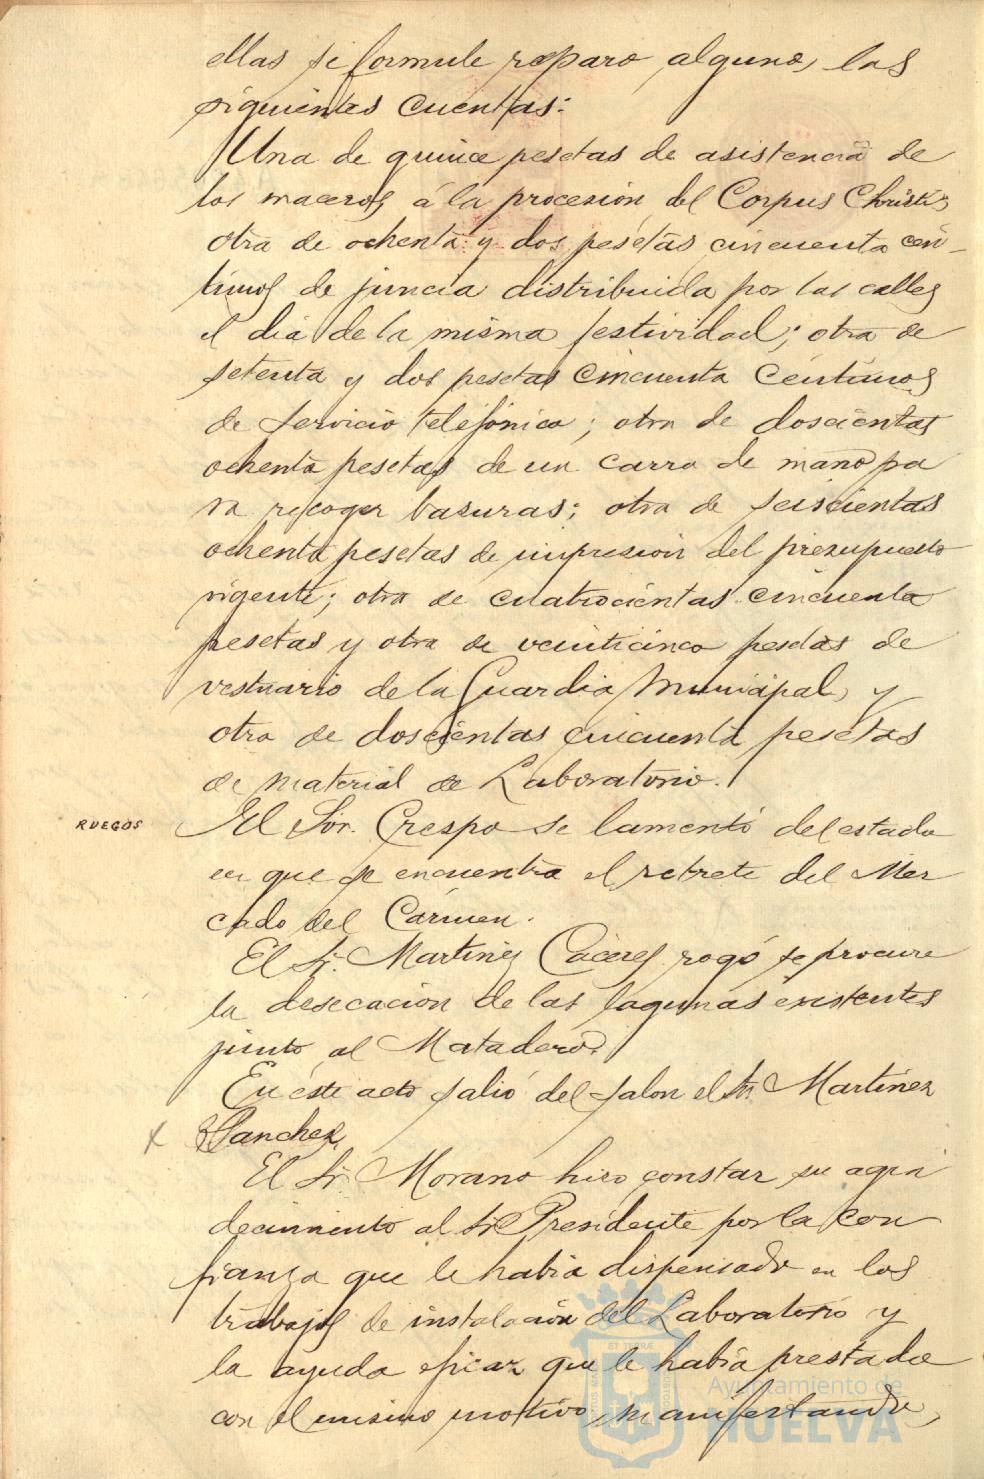 ellas se formule reparo alguno, las
siguientes cuentas:
Una de quince pesetas de asistencia de
los maceros á la procesión del Corpus Christi;
otra de ochenta y dos pesetas cincuenta cén-
timos de juncia distribuida por las calles
el dia de la misma festividad; otra de
setenta y dos pesetas cincuenta céntimos
de servicio telefónico; otra de doscientas
ochenta pesetas de un carro de mano pa
ra recoger basuras; otra de seiscientas
ochenta pesetas de impresión del presupuesto
vigente; otra de cuatrocientas cincuenta
pesetas y otra de veinticinco pesetas de
vestuario de la Guardia Municipal, y
otra de doscientas cincuenta pesetas
de material de Laboratorio.
RUEGOS El Sor. Crespo se lamentó del estado
en que se encuentra el retrete del Mer
cado del Cármen.
El Sr. Martinez Cáceres rogó se procure
la desecación de las lagunas existentes
junto al Matadero.
En éste acto salió del salon el Sr. Martinez
X Sanchez.
El Sr. Morano hizo constar su agra
decimiento al Sr. Presidente por la con
fianza que le habia dispensado en los
trabajos de instalación del Laboratorio y
la ayuda eficaz que le habia prestado
con el mismo motivo, manifestando,
Ayuntamiento de
HUELVA